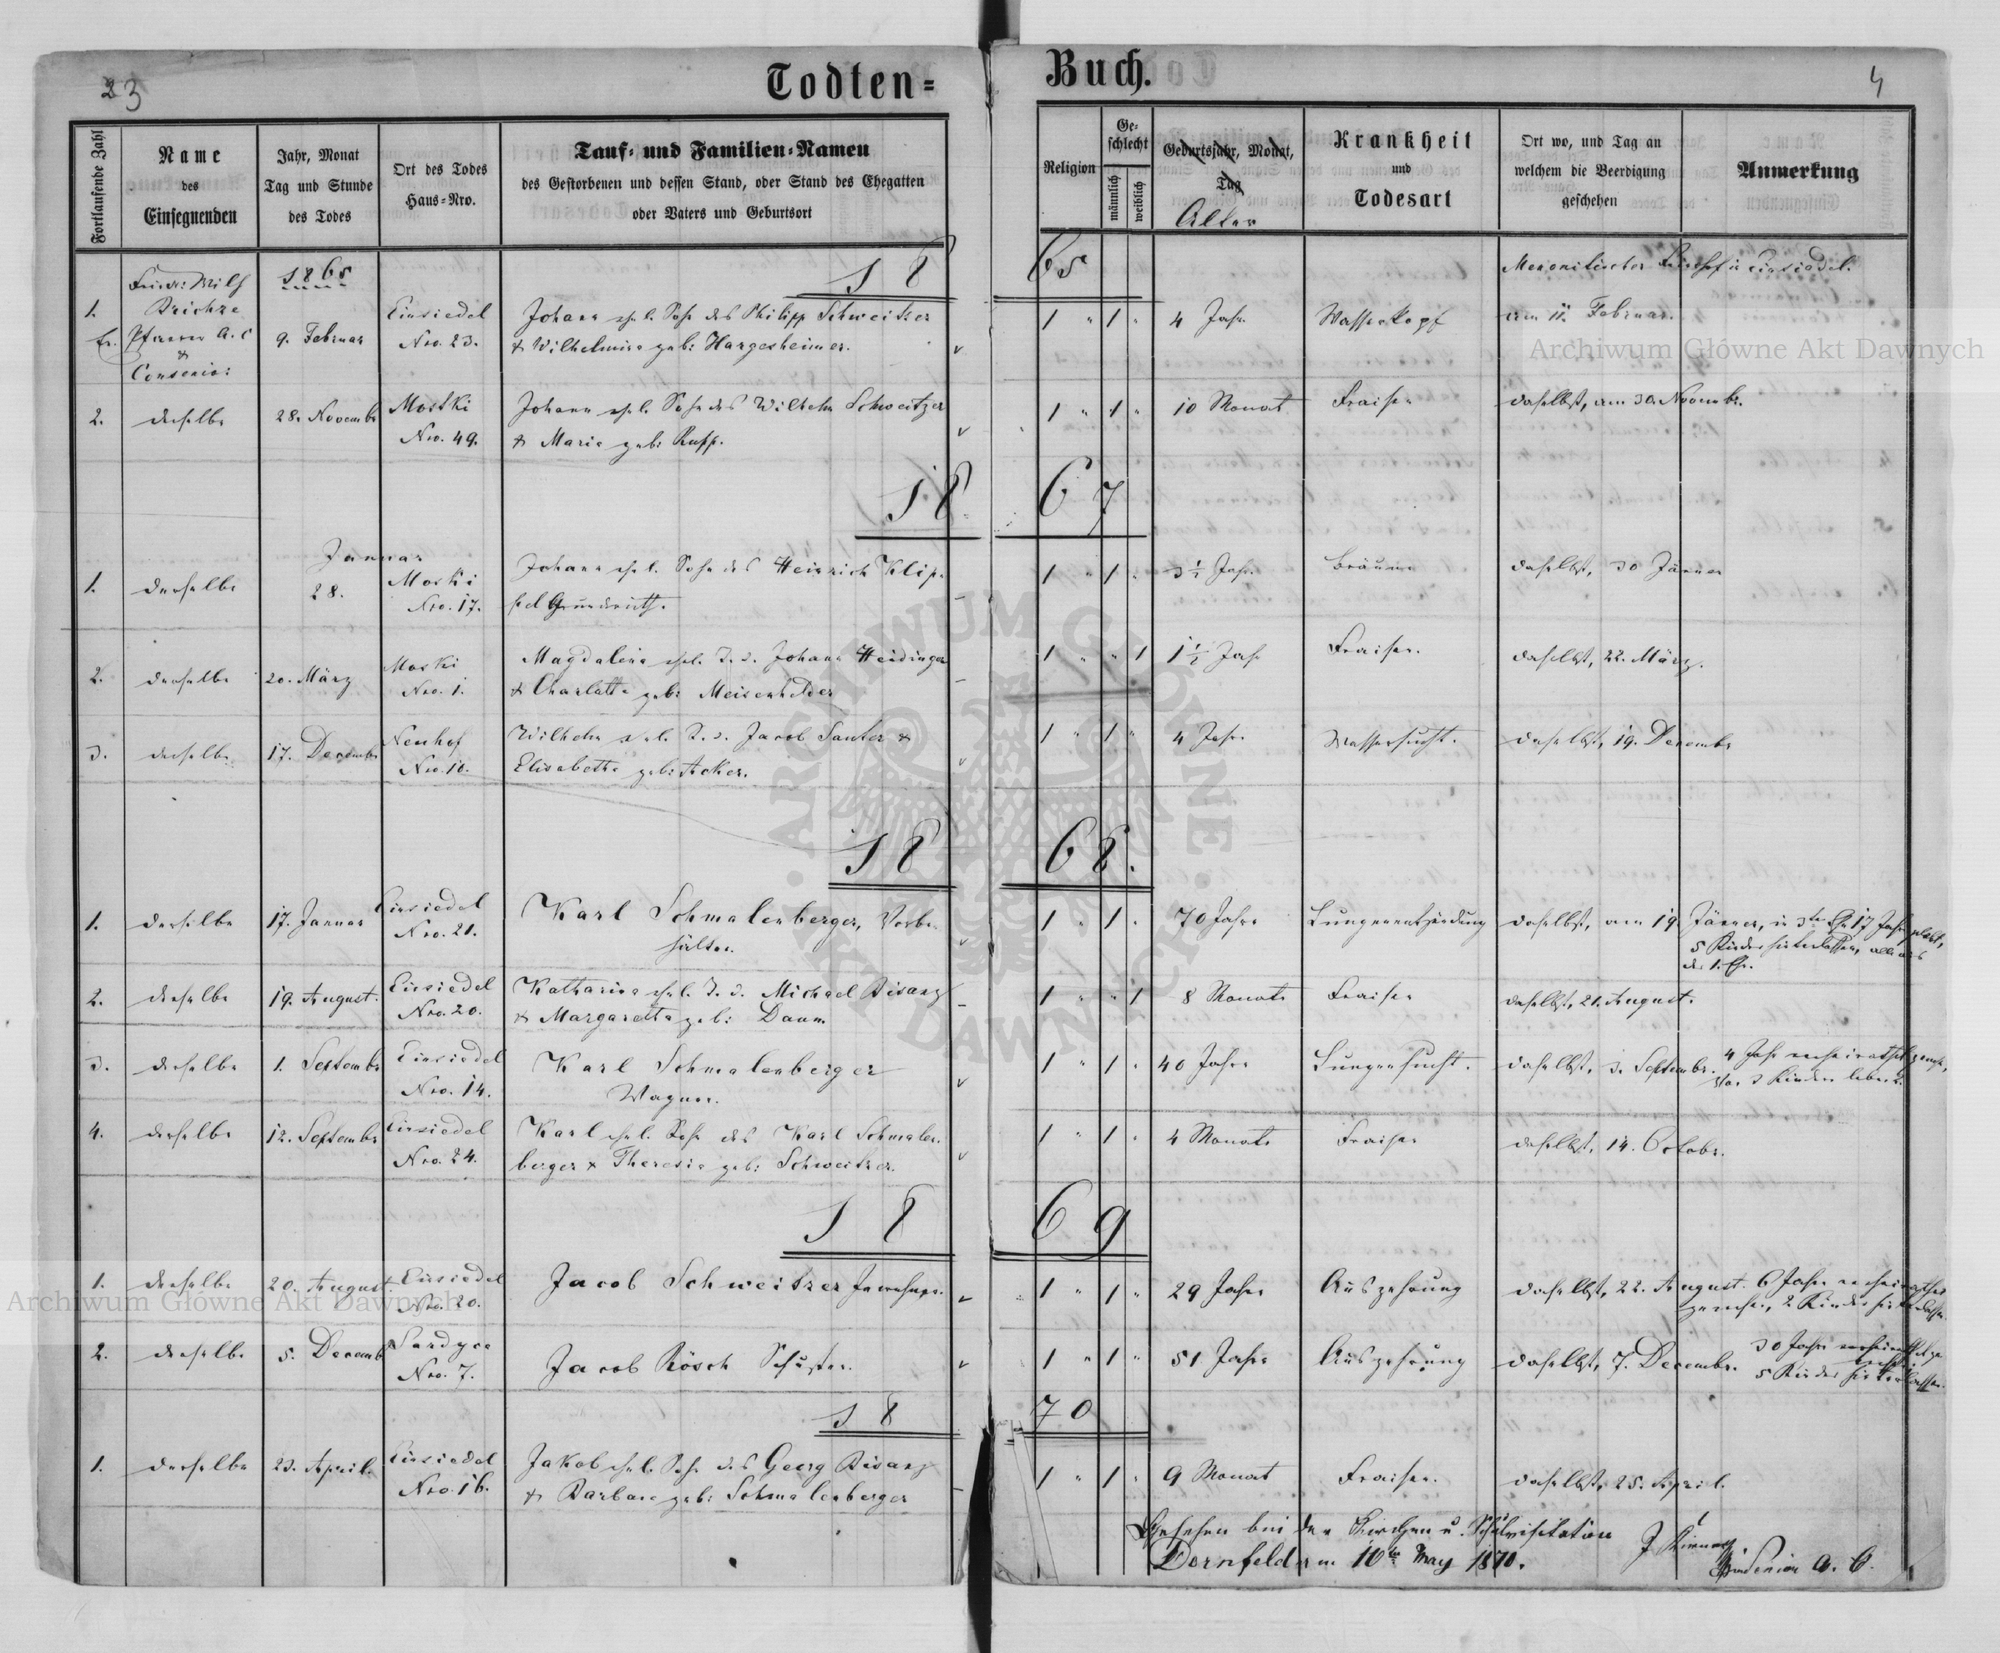 23
Todten=
Buch.
4
Fortlaufende Zahl
Name
des
Einsegnenden
Jahr, Monat
Tag und Stunde
des Todes
Ort des Todes
Haus=Nro.
Tauf= und Familien=Namen
des Gestorbenen und dessen Stand, oder Stand des Ehegatten
oder Vaters und Geburtsort
Religion
Ge=
schlecht
männlich
weiblich
Geburtsjahr, Monat,
Tag
Alter
Krankheit
und
Todesart
Ort wo, und Tag an
welchem die Beerdigung
geschehen
Anmerkung
1865
18 65
1.
Pfarrer A. C
&
Consenior
9. Februar
Einsiedel
Nro. 23.
Johann ehel. Sohn des Philipp Schweitzer
& Wilhelmine geb: Hargesheimer.
1 " 1 "
4 Jahr
Wasserkopf
Menonitischer Kirchhof in Einsiedel.
am 11. Februar.
2.
derselbe
28. Novembr
Mostki
Nro. 49.
Johann ehel. Sohn des Wilhelm Schweitzer
& Maria geb: Rupp.
1 " 1 "
10 Monat
Fraisen
daselbst, am 30. Novembr.
18 67
1.
derselbe
Januar
28.
Moski
Nro. 17.
Johann ehel. Sohn des Heinrich Klip=
1 " 1 "
3½ Jahr
Bräune
daselbst, 30 Jänner
2.
derselbe
20. März
Moski
Nro. 1.
Magdalena ehel. T. d. Johann Heidinger
& Charlotte geb: Meisenhelder
1 " " 1
1½ Jahr
Fraisen.
daselbst, 22. März.
3.
derselbe
17. Decembr
Neuhof
Nro. 10.
Wilhelm ehel. S. d. Jacob Sauter &
Elisabetha geb: Acker.
1 " 1 "
4 Jahr.
Wassersucht.
daselbst, 19. Decembr
18 68.
1.
derselbe
17. Januar
Einsiedel
Nro. 21.
Karl Schmalenberger, Vorbe=
hälter.
1 " 1 "
70 Jahre
Lungenentzündung
daselbst, am 19. Jänner, in 3ter Ehe 17 Jahre gelebt,
5 Kinder hinterlassen, alle aus
der 1. Ehe.
2.
derselbe
19. August.
Einsiedel
Nro. 20.
Katharina ehel. T. d. Michael Bisanz
& Margaretha geb: Daum
1 " " 1
8 Monate
Fraisen
daselbst, 21. August.
3.
derselbe
1. Septembr
Einsiedel
Nro. 14.
Karl Schmalenberger
Wagner.
1 " 1 "
40 Jahre
Lungensucht.
daselbst, 3. Septembr.
4.
derselbe
12. Septembr
Einsiedel
Nro. 24.
Karl ehel. Sohn des Karl Schmalen=
berger & Theresia geb: Schweitzer.
1 " 1 "
4 Monate
Fraisen
daselbst, 14. Octobr.
18 69
1.
derselbe
20. August.
Einsiedel
Nro. 20.
Jacob Schweitzer Inwohner.
1 " 1 "
29 Jahre
Auszehrung
daselbst, 22. August. 6 Jahre verheirathet
gewesen, 2 Kinder hinterlassen.
2.
derselbe
5. Decemb
Nro. 7.
Jacob Rösch Schuster.
1 " 1 "
51 Jahre
Auszehrung
daselbst, 7. Decembr.
30 Jahre
5 Kinder hinterlassen.
18 70
1.
derselbe
23. April.
Einsiedel
Nro. 16.
Jakob ehel. Sohn des Georg Bisanz
& Barbara geb: Schmalenberger
1 " 1 "
9 Monat
Fraisen.
daselbst, 25. April.
Gesehen bei der Kirchen u. Schulvisitation
Dornfeld am 10ten May 1870.
Senior A. C.
Archiwum Główne Akt Dawnych
Archiwum Główne Akt Dawnych
ARCHIWUM GŁÓWNE AKT DAWNYCH